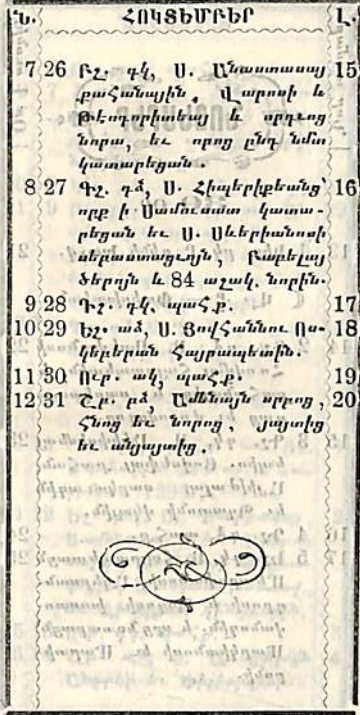 Ն. ՀՈԿՏԵՄԲԵՐ Լ.
7 26 Բշ. գկ, Ս. Անաստասայ 15
քահանային, Վարոսի և
Թէոդորիտեայ և որդւոց
նորա, եւ որոց ընդ նմա
կատարեցան.
8 27 Գշ. դձ, Ս. Հիպերիքեանց՝ 16
որք ի Սամուսատ կատա-
րեցան եւ Ս. Սևերիանոսի
սեբաստացւոյն, Բաբելայ
ծերոյն և 84 աշակ. նորին.
9 28 Դշ. դկ, պահ.ք. 17
10 29 Եշ. աձ, Ս. Յովհաննու Ոս- 18
կեբերան Հայրապետին.
11 30 Ուր. ակ, պահ.ք. 19
12 31 Շբ. բձ, Ամենայն սրբոց, 20
հնոց եւ նորոց, յայտից
եւ անյայտից.